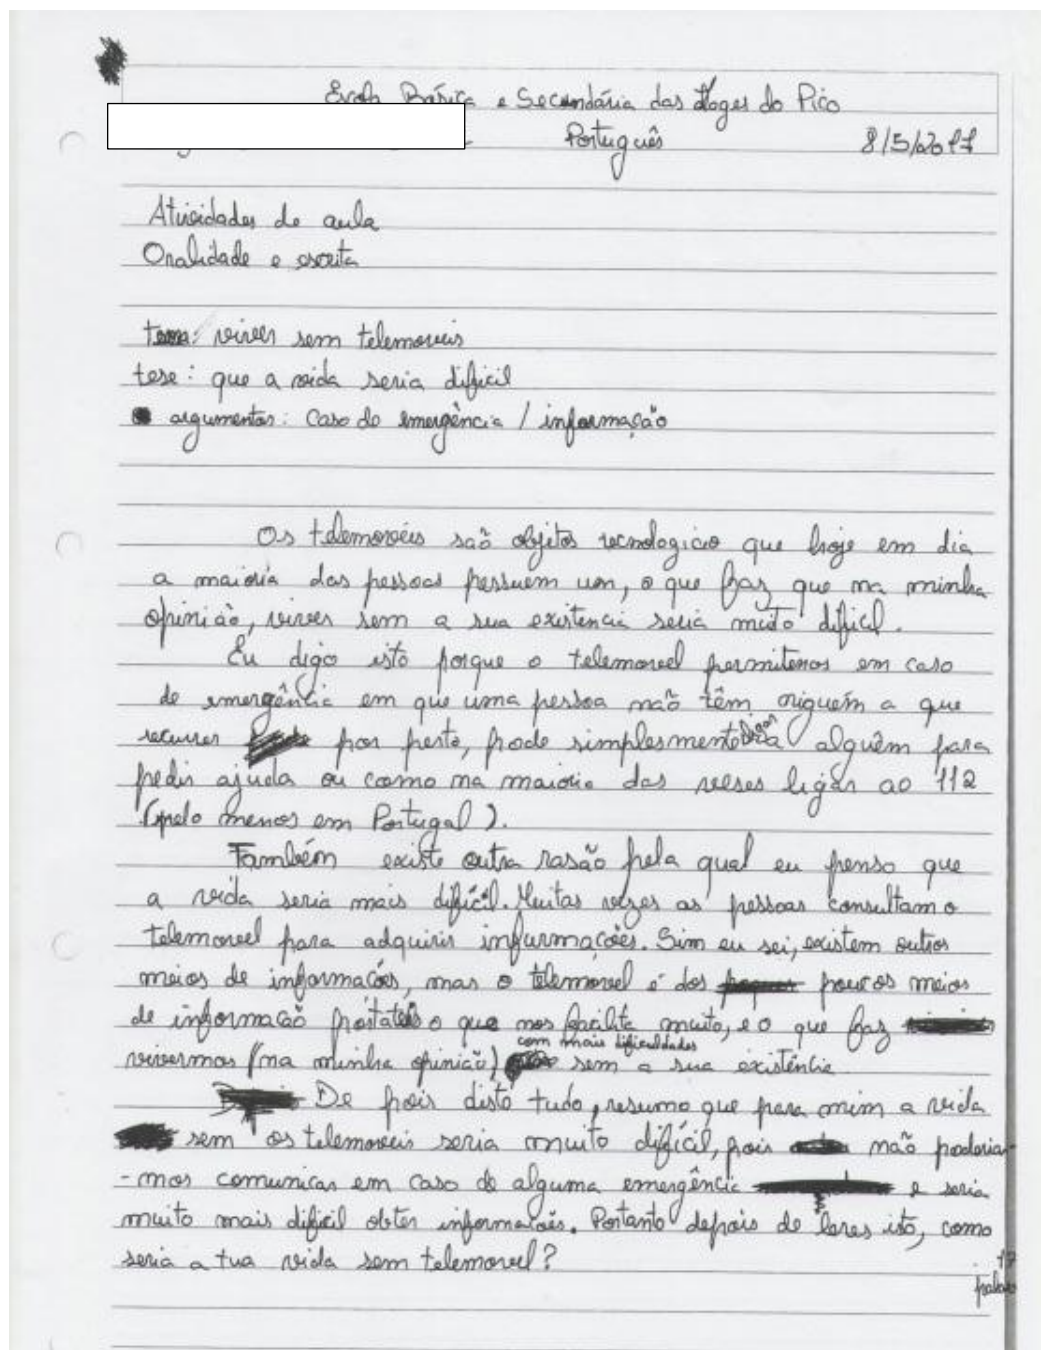 Escola Básica e Secundária das Lages do Pico
Português 8/5/2017
Atividades de aula
Oralidade e escrita
tema: viver sem telemoveis
tese: que a vida seria dificil
argumentos: Caso de emergência / informação
Os telemovéis saõ objetos tecnologico que hoje em dia
a maioria das pessoas possuem um, o que faz que na minha
opinião, viver sem a sua existencia seria muito dificil.
Eu digo isto porque o telemovel permitenos em caso
de emergência em que uma pessoa não têm niguém a que
recurrer por perto, pode simplesmente ligar a alguêm para
pedir ajuda ou como na maioria das veses ligar ao 112
(pelo menos em Portugal).
Também existe outra rasão pela qual eu penso que
a vida seria mais difícil. Muitas vezes as pessoas consultam o
telemovel para adquirir informações. Sim eu sei, existem outros
meios de informacões, mas o telemovel é dos poucos meios
de informacão portateis o que nos facilita muito, e o que faz
vivermos (na minha opinião) com mais dificuldades sem a sua existência
De pois disto tudo, resumo que para mim a vida
sem os telemoveis seria muito difícil, pois não poderia-
-mos comunicar em caso de alguma emergência e seria
muito mais dificil obter informacões. Portanto depois de leres isto, como
seria a tua vida sem telemovel?